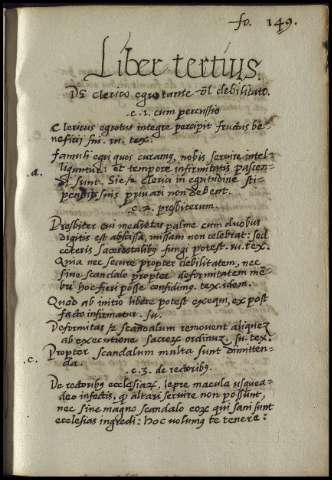 fo. 149.
Liber tertius.
De clerico egrotante vl debilitato.
.c. 1. cum percussio
Clericus egrotus integre percipit fructus be-
neficij sui. in. tex.
famuli equi quos curamus, nobis seruire intel-
liguntur: et tempore infirmitatis pascen-
.a.
di sunt. Sic et clerici in egritudine sti-
pendijs suis priuari non debent.
.c. 2. presbiterum
Presbiter cui medietas palme cum duobus
digitis est abscissa, missam non celebrat: sed
ceteris sacerdotalibus fungi potest. in. tex.
Quia nec secure propter debilitatem, nec
sine scandalo propter deformitatem mē-
bri hoc fieri posse confidimq. tex. idem.
Quod ab initio libere potest exequi, ex post
facto infirmatur. su.
Deformitas et scandalum remouent aliquem
ab executione sacrorum ordinum. su. tex.
.c.
Propter scandalum multa sunt omitten-
da.
.c. 3. de rectoribus
De rectoribus ecclesiarum, lepre macula usquea-
deo infectis, q altari seruire non possunt,
nec sine magno scandalo eorum qui sani sunt
ecclesias ingredi: hoc volumq te tenere: